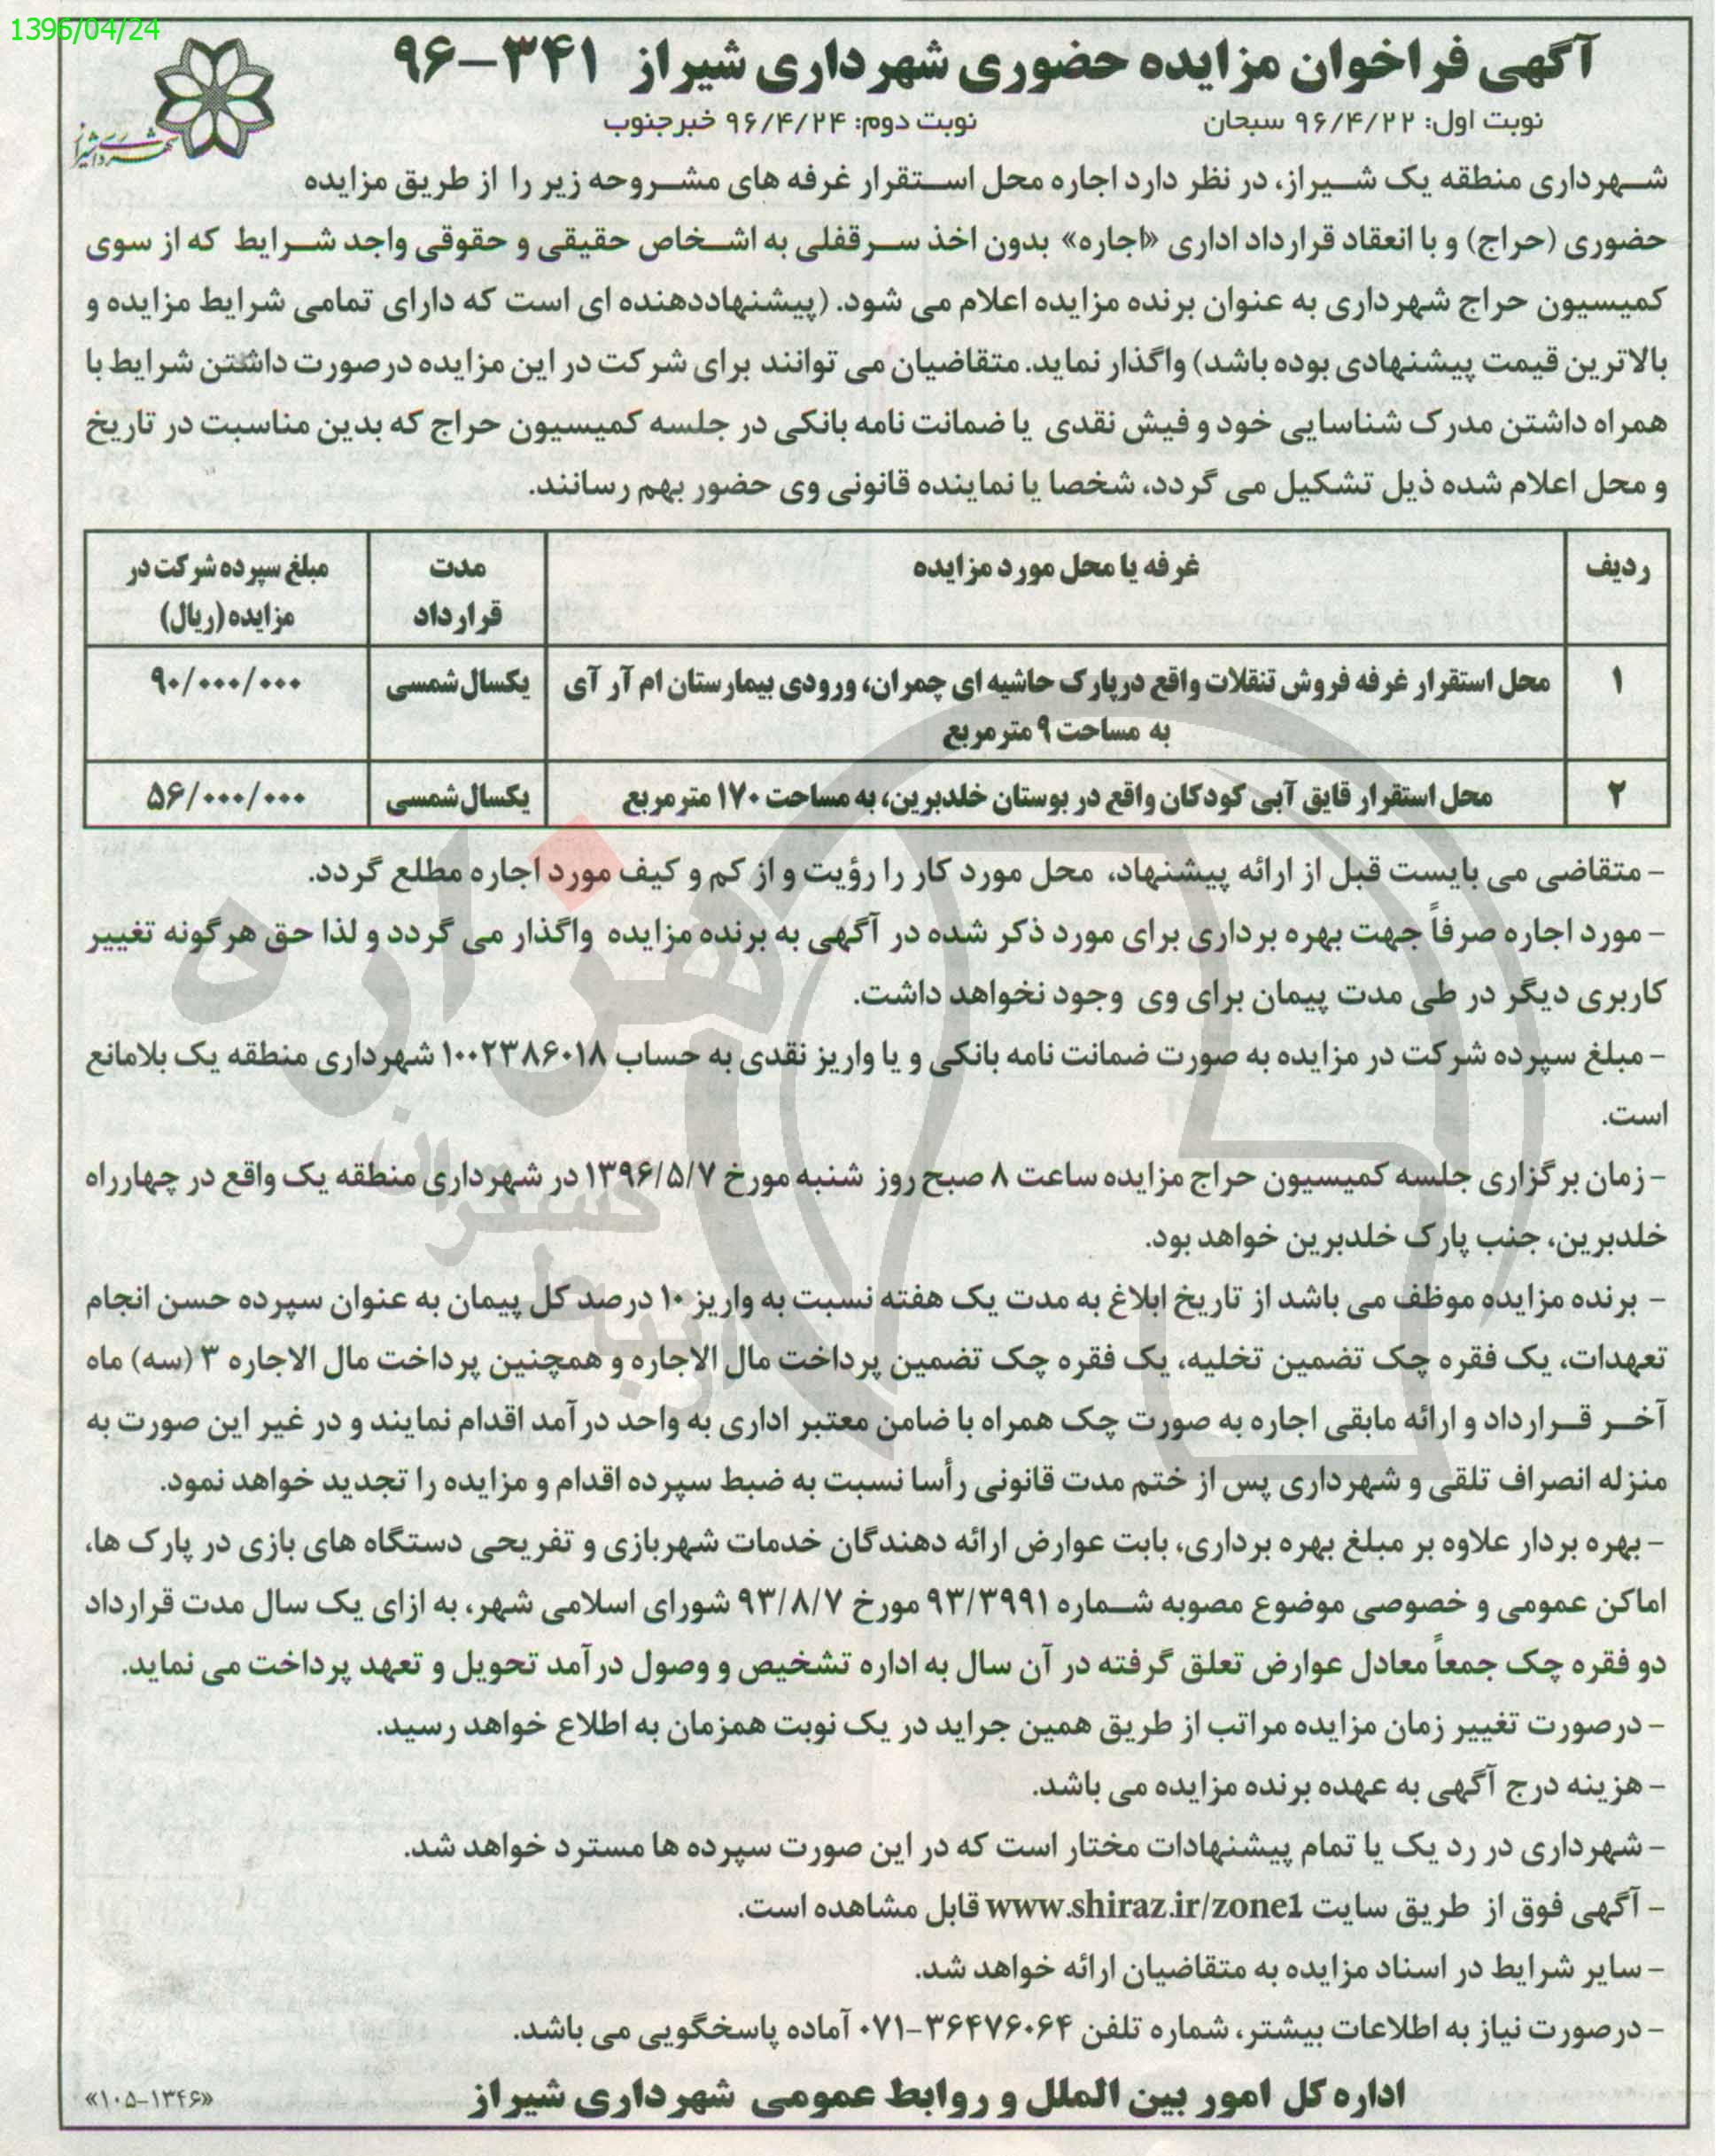 1396/04/24
آگهی فراخوان مزایده حضوری شهرداری شیراز ۳۴۱-۹۶
نوبت اول: ۹۶/۴/۲۲ سبحان نوبت دوم: ۹۶/۴/۲۴ خبرجنوب
شهرداری شیراز
شهرداری منطقه یک شیراز، در نظر دارد اجاره محل استقرار غرفه های مشروحه زیر را از طریق مزایده
حضوری (حراج) و با انعقاد قرارداد اداری «اجاره» بدون اخذ سرقفلی به اشخاص حقیقی و حقوقی واجد شرایط که از سوی
کمیسیون حراج شهرداری به عنوان برنده مزایده اعلام می شود. (پیشنهاددهنده ای است که دارای تمامی شرایط مزایده و
بالاترین قیمت پیشنهادی بوده باشد) واگذار نماید. متقاضیان می توانند برای شرکت در این مزایده درصورت داشتن شرایط با
همراه داشتن مدرک شناسایی خود و فیش نقدی یا ضمانت نامه بانکی در جلسه کمیسیون حراج که بدین مناسبت در تاریخ
و محل اعلام شده ذیل تشکیل می گردد، شخصا یا نماینده قانونی وی حضور بهم رسانند.
ردیف غرفه یا محل مورد مزایده مدت قرارداد مبلغ سپرده شرکت در مزایده (ریال)
۱ محل استقرار غرفه فروش تنقلات واقع درپارک حاشیه ای چمران، ورودی بیمارستان ام آر آی به مساحت ۹ مترمربع یکسال شمسی ۹۰/۰۰۰/۰۰۰
۲ محل استقرار قایق آبی کودکان واقع در بوستان خلدبرین، به مساحت ۱۷۰ مترمربع یکسال شمسی ۵۶/۰۰۰/۰۰۰
- متقاضی می بایست قبل از ارائه پیشنهاد، محل مورد کار را رؤیت و از کم و کیف مورد اجاره مطلع گردد.
- مورد اجاره صرفاً جهت بهره برداری برای مورد ذکر شده در آگهی به برنده مزایده واگذار می گردد و لذا حق هرگونه تغییر
کاربری دیگر در طی مدت پیمان برای وی وجود نخواهد داشت.
- مبلغ سپرده شرکت در مزایده به صورت ضمانت نامه بانکی و یا واریز نقدی به حساب ۱۰۰۲۳۸۶۰۱۸ شهرداری منطقه یک بلامانع
است.
- زمان برگزاری جلسه کمیسیون حراج مزایده ساعت ۸ صبح روز شنبه مورخ ۱۳۹۶/۵/۷ در شهرداری منطقه یک واقع در چهارراه
خلدبرین، جنب پارک خلدبرین خواهد بود.
- برنده مزایده موظف می باشد از تاریخ ابلاغ به مدت یک هفته نسبت به واریز ۱۰ درصد کل پیمان به عنوان سپرده حسن انجام
تعهدات، یک فقره چک تضمین تخلیه، یک فقره چک تضمین پرداخت مال الاجاره و همچنین پرداخت مال الاجاره ۳ (سه) ماه
آخر قرارداد و ارائه مابقی اجاره به صورت چک همراه با ضامن معتبر اداری به واحد درآمد اقدام نمایند و در غیر این صورت به
منزله انصراف تلقی و شهرداری پس از ختم مدت قانونی رأسا نسبت به ضبط سپرده اقدام و مزایده را تجدید خواهد نمود.
- بهره بردار علاوه بر مبلغ بهره برداری، بابت عوارض ارائه دهندگان خدمات شهربازی و تفریحی دستگاه های بازی در پارک ها،
اماکن عمومی و خصوصی موضوع مصوبه شماره ۹۳/۳۹۹۱ مورخ ۹۳/۸/۷ شورای اسلامی شهر، به ازای یک سال مدت قرارداد
دو فقره چک جمعاً معادل عوارض تعلق گرفته در آن سال به اداره تشخیص و وصول درآمد تحویل و تعهد پرداخت می نماید.
- درصورت تغییر زمان مزایده مراتب از طریق همین جراید در یک نوبت همزمان به اطلاع خواهد رسید.
- هزینه درج آگهی به عهده برنده مزایده می باشد.
- شهرداری در رد یک یا تمام پیشنهادات مختار است که در این صورت سپرده ها مسترد خواهد شد.
- آگهی فوق از طریق سایت www.shiraz.ir/zone1 قابل مشاهده است.
- سایر شرایط در اسناد مزایده به متقاضیان ارائه خواهد شد.
- درصورت نیاز به اطلاعات بیشتر، شماره تلفن ۳۶۴۷۶۰۶۴-۰۷۱ آماده پاسخگویی می باشد.
اداره کل امور بین الملل و روابط عمومی شهرداری شیراز
«۱۰۵-۱۳۴۶»
هزاره